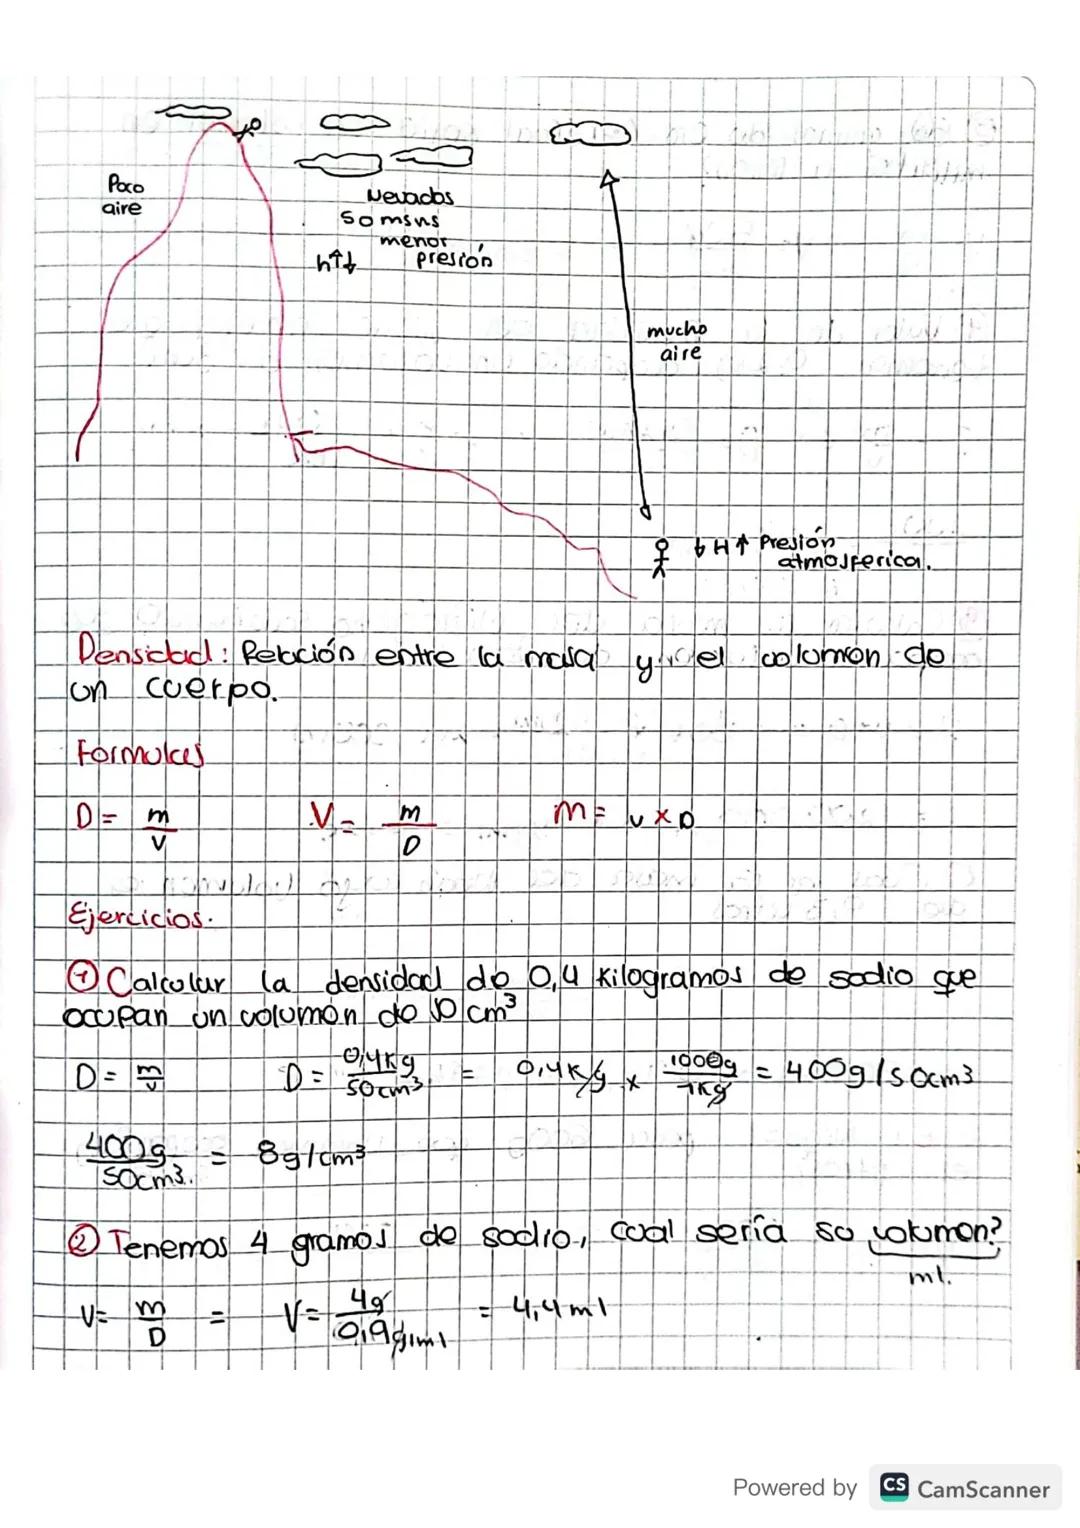 Poco
aire
Nevados
50 msns
menor
h↑↓ presión
mucho
aire
↓H↑ Presión
atmosferica.
Densidad: Relación entre la masa y el volumen de
un cuerpo.
Formulas
D = m/v V = m/D m = v x D
Ejercicios.
① Calcular la densidad de 0,4 Kilogramos de sodio que
ocupan un volumen de 50 cm³
D = m/v D = 0,4Kg/50cm³ = 0,4Kg x 1000g/1Kg = 400g/50cm³
400g/50cm³. = 8g/cm³
② Tenemos 4 gramos de sodio, cual sería su volumen?
ml.
V= m/D = V= 4g/0,9g/ml = 4,4ml
Powered by CS CamScanner